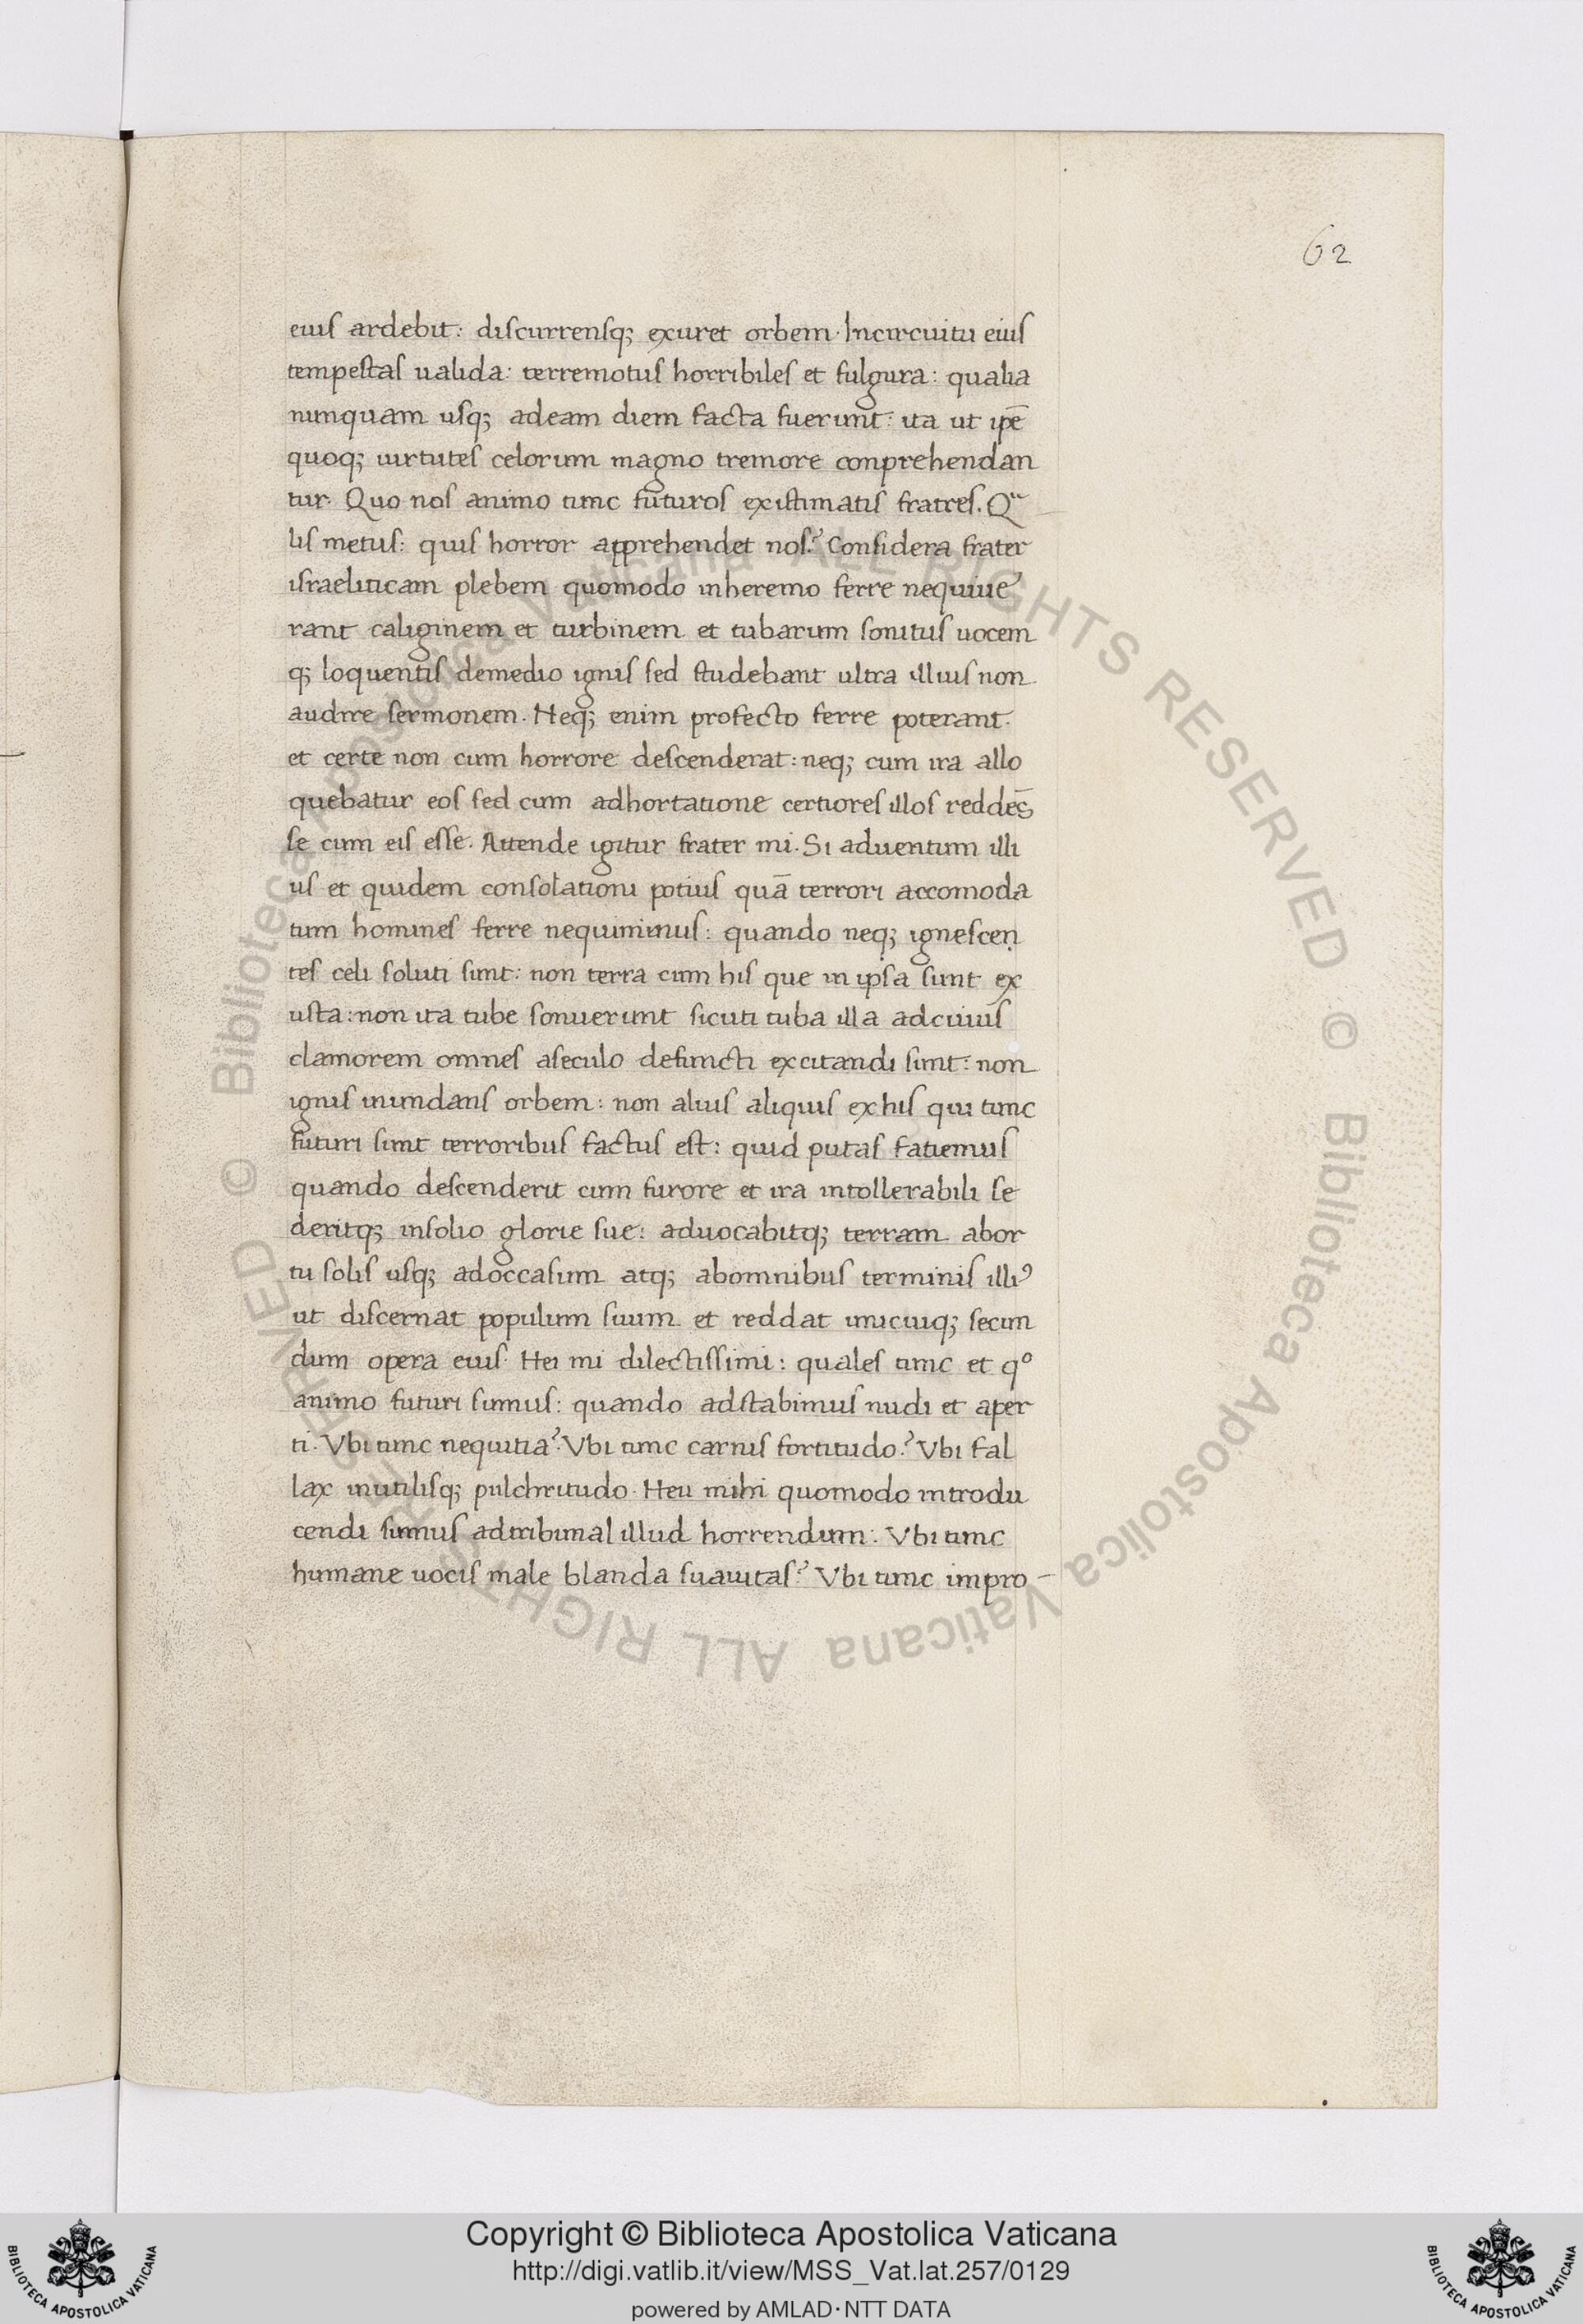 62
eius ardebit: discurrensq; exuret orbem. Incircuitu eius
tempestas ualida: terremotus horribiles et fulgura: qualia
nunquam usq; adeam diem facta fuerunt: ita ut ip̄e
quoq; uirtutes celorum magno tremore conprehendan
tur. Quo nos animo tunc futuros existimatis fratres. Qᵃ
lis metus: quis horror apprehendet nos? Considera frater
israeliticam plebem quomodo inheremo ferre nequiue
rant caliginem et turbinem et tubarum sonitus uocem
q; loquentis demedio ignis sed studebant ultra illius non
audire sermonem. Neq; enim profecto ferre poterant.
et certe non cum horrore descenderat: neq; cum ira allo
quebatur eos sed cum adhortatione certiores illos reddēs
se cum eis esse. Attende igitur frater mi. Si aduentum illi
us et quidem consolationi potius quā terrori accomoda
tum homines ferre nequiuimus: quando neq; ignescen
tes celi soluti sunt: non terra cum his que in ipsa sunt ex
usta: non ita tube sonuerunt sicuti tuba illa adcuius
clamorem omnes aseculo defuncti excitandi sunt: non
ignis inundans orbem: non alius aliquis exhis qui tunc
futuri sunt terroribus factus est: quid putas fatiemus
quando descenderit cum furore et ira intollerabili se
deritq; insolio glorie sue: aduocabitq; terram abor
tu solis usq; adoccasum atq; abomnibus terminis illiꝰ
ut discernat populum suum et reddat unicuiq; secun
dum opera eius. Hei mi dilectissimi: quales tunc et qº
animo futuri sumus: quando adstabimus nudi et aper
ti. Vbi tunc nequitia? Vbi tunc carnis fortitudo? Vbi fal
lax inutilisq; pulchritudo. Heu mihi quomodo introdu
cendi sumus adtribunal illud horrendum: Vbi tunc
humane uocis male blanda suauitas? Vbi tunc impro-
© Biblioteca Apostolica Vaticana ALL RIGHTS RESERVED © Biblioteca Apostolica Vaticana ALL RIGHTS RESERVED
BIBLIOTECA APOSTOLICA VATICANA
Copyright © Biblioteca Apostolica Vaticana
http://digi.vatlib.it/view/MSS_Vat.lat.257/0129
powered by AMLAD·NTT DATA
BIBLIOTECA APOSTOLICA VATICANA